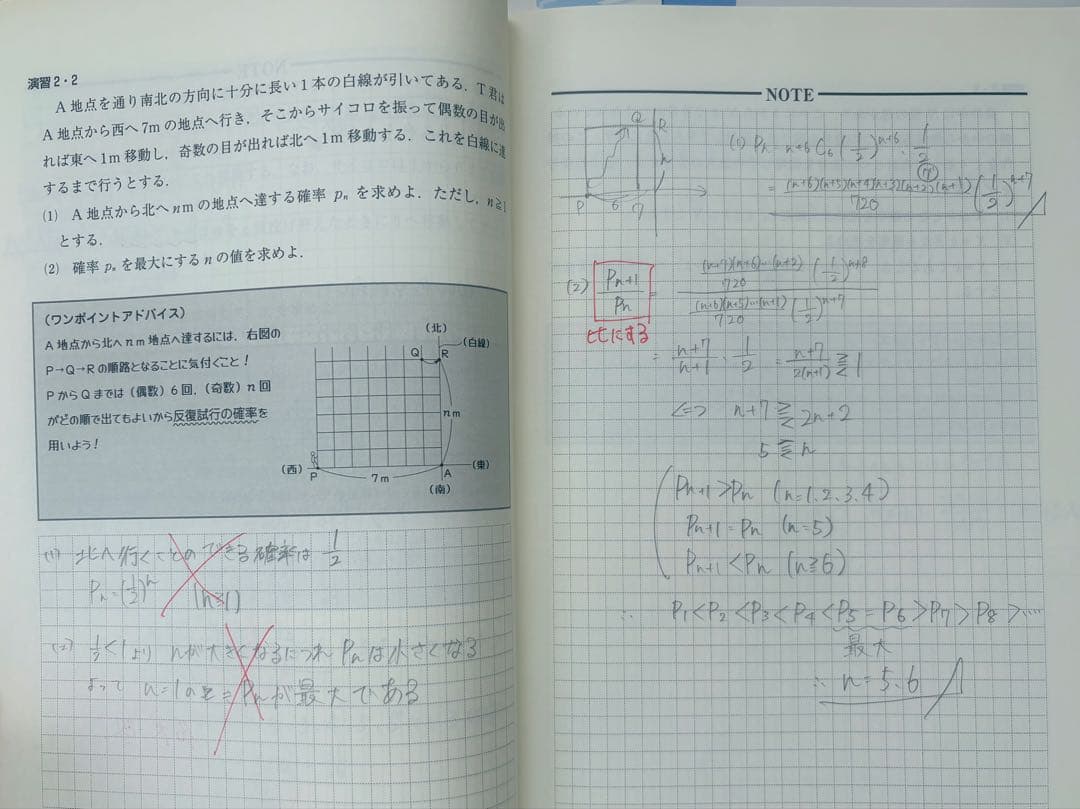 演習2・2
A地点を通り南北の方向に十分に長い1本の白線が引いてある．T君は
A地点から西へ7mの地点へ行き，そこからサイコロを振って偶数の目が出
れば東へ1m移動し，奇数の目が出れば北へ1m移動する．これを白線に達
するまで行うとする．
(1) A地点から北へnmの地点へ達する確率 pₙ を求めよ．ただし，n≧1
とする．
(2) 確率 pₙ を最大にするnの値を求めよ．
〈ワンポイントアドバイス〉
A地点から北へnm地点へ達するには，右図の
P→Q→Rの順路となることに気付くこと！
PからQまでは（偶数）6回，（奇数）n回
がどの順で出てもよいから反復試行の確率を
用いよう！
（北）
（白線）
Q
R
nm
（西）
P
7m
A
（東）
（南）
(1) 北へ行くことのできる確率は 1/2
Pn=(1/2)^n (n≧1)
(2) 1/2<1より nが大きくなるにつれ Pnは小さくなる
よって n=1のとき Pnが最大である
NOTE
Q
R
n
P
6
7
(1) Pn = n+6C6 (1/2)^n+6 · 1/2
= (n+6)(n+5)(n+4)(n+3)(n+2)(n+1)/720 (1/2)^n+7
(2) Pn+1/Pn = (n+7)(n+6)…(n+2)/720 (1/2)^n+8 / (n+6)(n+5)…(n+1)/720 (1/2)^n+7
比にする
= n+7/n+1 · 1/2 = n+7/2(n+1) ⋛ 1
⇔ n+7 ⋛ 2n+2
5 ⋛ n
Pn+1>Pn (n=1.2.3.4)
Pn+1=Pn (n=5)
Pn+1<Pn (n≧6)
∴ P1<P2<P3<P4<P5=P6>P7>P8>……
最大
∴ n=5.6